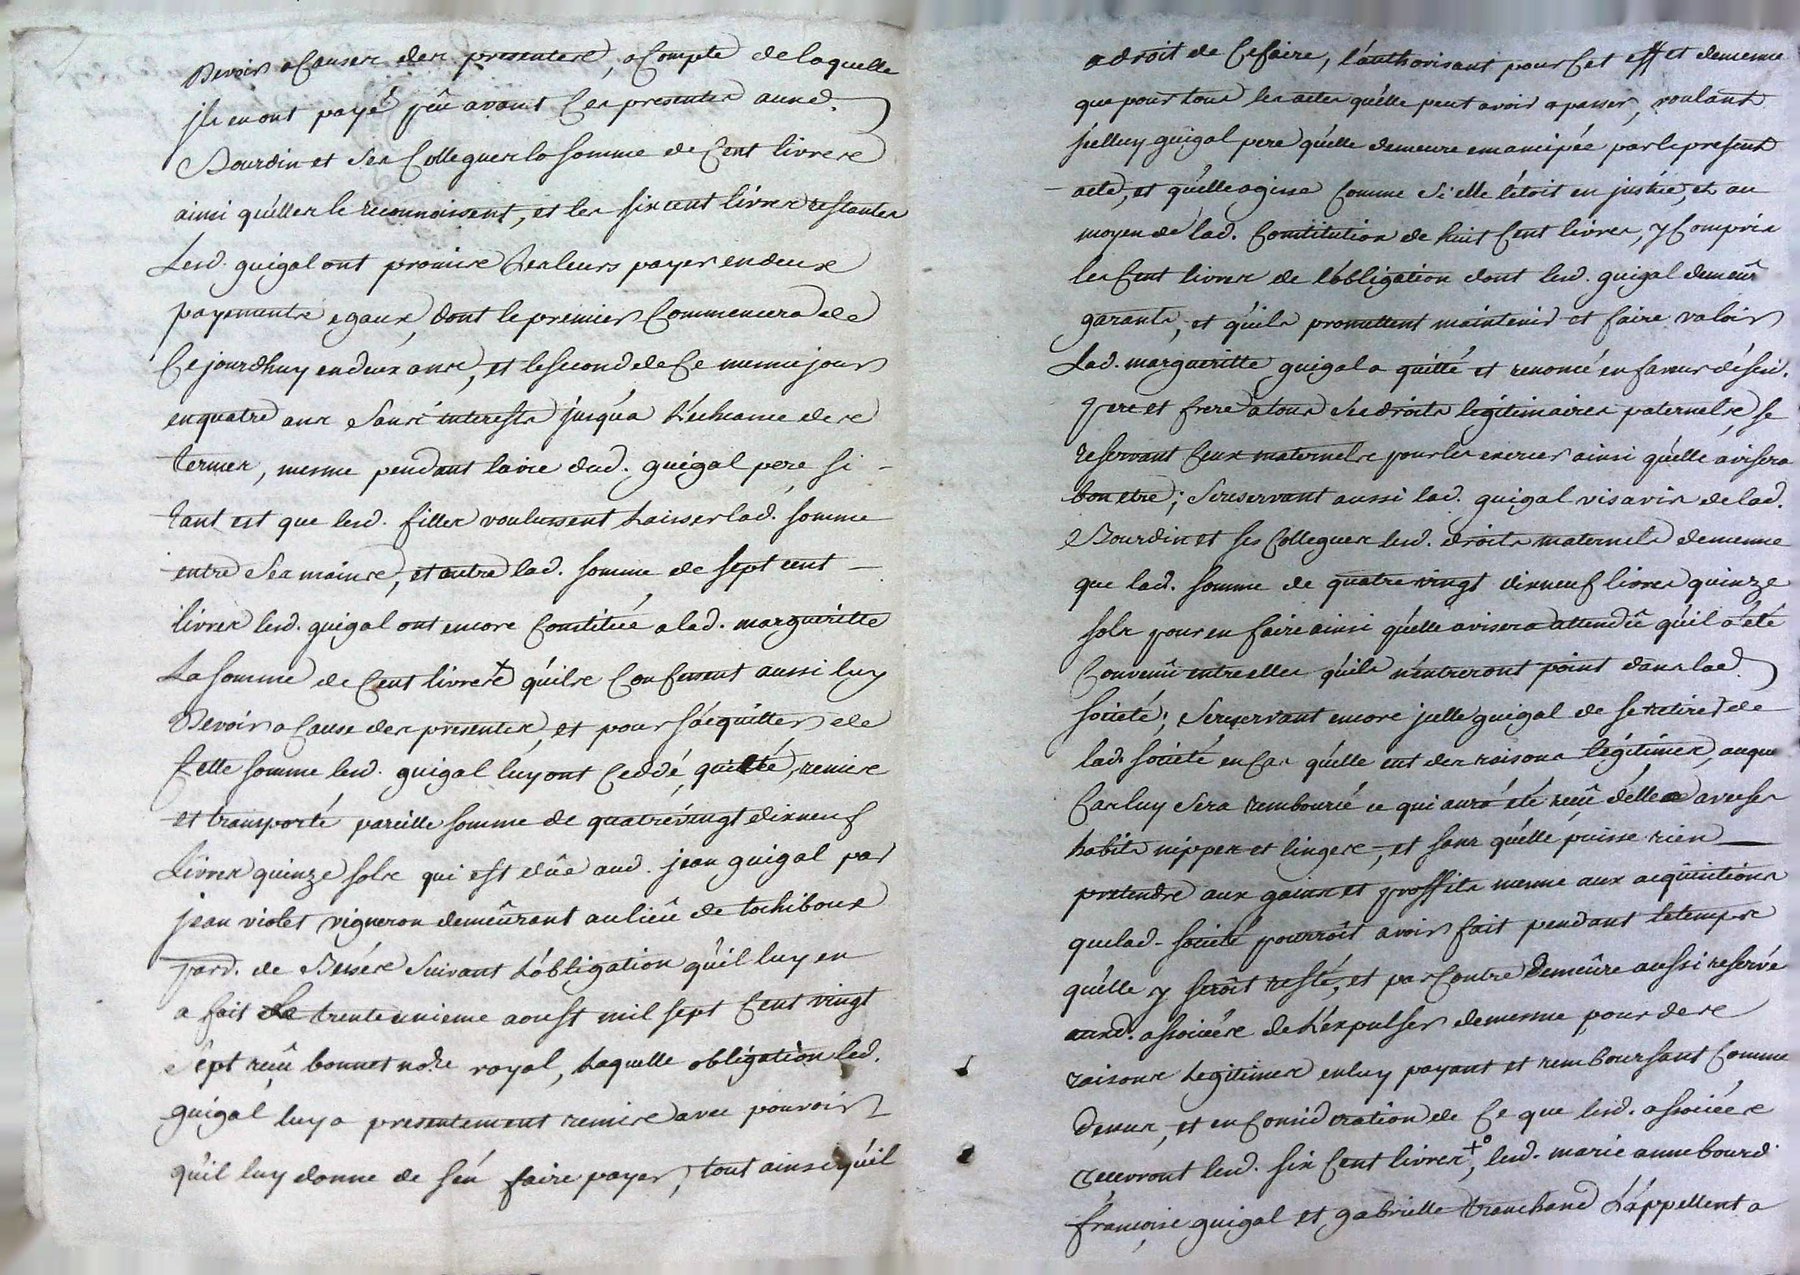 Devoir a causes des presentes, a Compte de laquelle
ils en ont payé jcû avant Ces presentes auxd.
Bourdin et Ses Collegues la somme de Cent livres
ainsi qu'elles le reconnoissent, et les six cent livres restantes
Lesd. guigal ont promis de les leurs payer en deux
payements egaux, dont le premier Commencera de
Ce jourdhuy en deux ans, et le second de Ce meme jour
en quatre ans Sans interests jusqu'a L'écheance des
termes, mesme pendant la vie dud. guigal pere, si -
tant est que lesd. filles voulussent Laisser lad. somme
entre Ses mains, et outre lad. somme de sept cent -
livres lesd. guigal ont encore Constitué a lad. margueritte
La somme de Cent livres + qu'ils Confessent aussi luy
Devoir a Cause des presentes, et pour s'acquitter de
Cette somme lesd. guigal luy ont Ceddé, quitté, remis
et transporté pareille somme de quatrevingt dixneuf
Livres quinze sols qui est dûe aud. jean guigal par
jean violet vigneron demeûrant au lieû de tochiboux
parr. de Suivant L'obligation qu'il luy en
a fait Le trente unieme aoust mil sept Cent vingt
sept reçû bonnet no.re royal, Laquelle obligation led.
guigal luy a presentement remis avec pouvoir
qu'il luy donne de s'en faire payer, tout ainsi qu'il
a droit de Ce faire, l'authorisant pour Cet effet demême
que pour tous les actes qu'elle peut avoir a passer, voulant
jcelluy guigal pere qu'elle demeure emancipée par le present
acte, et qu'elle agisse Comme Si elle l'étoit en justice, et au
moyen de lad. Constitution de huit Cent livres, y Compris
les Cent livres de l'obligation dont lesd. guigal demeûr
garants, et qu'ils promettent maintenir et faire valoir
Lad. margueritte guigal a quitté et renoncé en faveur désd.
pere et frere a tous Ses droits légitimaires paternels, se
reservant Ceux maternels pour les exercer ainsi qu'elle avisera
bon etre; Se reservant aussi lad. guigal vis a vis de lad.
Bourdin et ses Collegues lesd. droits maternels demême
que lad. somme de quatre vingt dixneuf livres quinze
sols pour en faire ainsi qu'elle avisera attendû qu'il a été
Convenû entre elles qu'ils n'entreront point dans lad.
societé; Se reservant encore jcelle guigal de se retirer de
lad. societé en Cas qu'elle eut des raisons légitimes, auquel
Cas luy Sera remboursé ce qui aura été reçû d'elle avec ses
habits nippes et linges, et sans qu'elle puisse rien
pretendre aux gains et proffits mesme aux acquisitions
que lad. societé pourroit avoir fait pendant le temps
qu'elle y seroit resté, et par Contre demeûre aussi reservé
auxd. associées de L'expulser demesme pour des
raisons Legitimes en luy payant et remboursant Comme
dessus, et en Consideration de Ce que lesd. associées
recevront lesd. six Cent livres +°, lesd. marie anne bourd.
françoise guigal et gabrielle tranchand L'appellent a